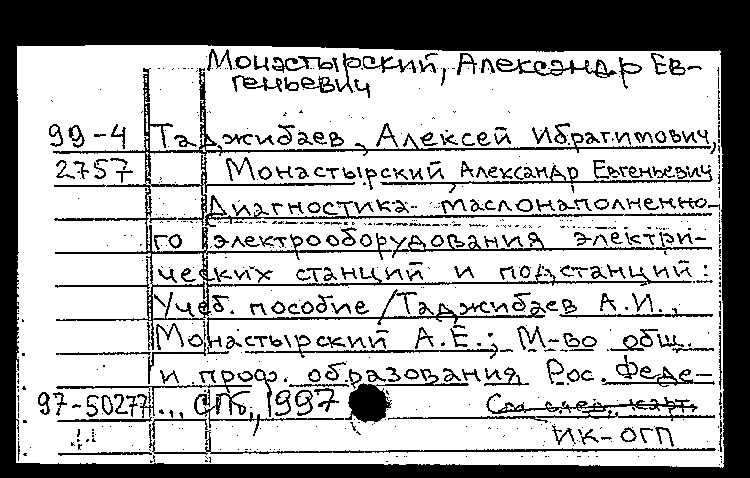 Монастырский, Александр Ев-
геньевич
99-4 Таджибаев, Алексей Ибрагимович,
2757 Монастырский Александр Евгеньевич
Диагностика маслонаполненно-
го электрооборудования электри-
ческих станций и подстанций:
Учеб. пособие / Таджибаев А.И.,
Монастырский А.Е.; М-во общ.
и проф. образования Рос. Феде-
97-50277 ... СПб, 1997 См след. карт.
ИК-ОГП